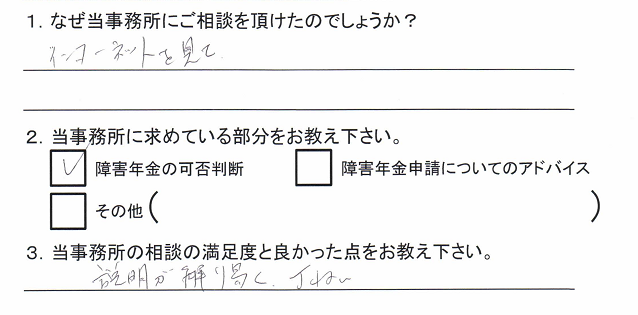 1. なぜ当事務所にご相談を頂けたのでしょうか？
インターネットを見て
2. 当事務所に求めている部分をお教え下さい。
障害年金の可否判断 障害年金申請についてのアドバイス
その他( )
3. 当事務所の相談の満足度と良かった点をお教え下さい。
説明が解り易く、丁ねい